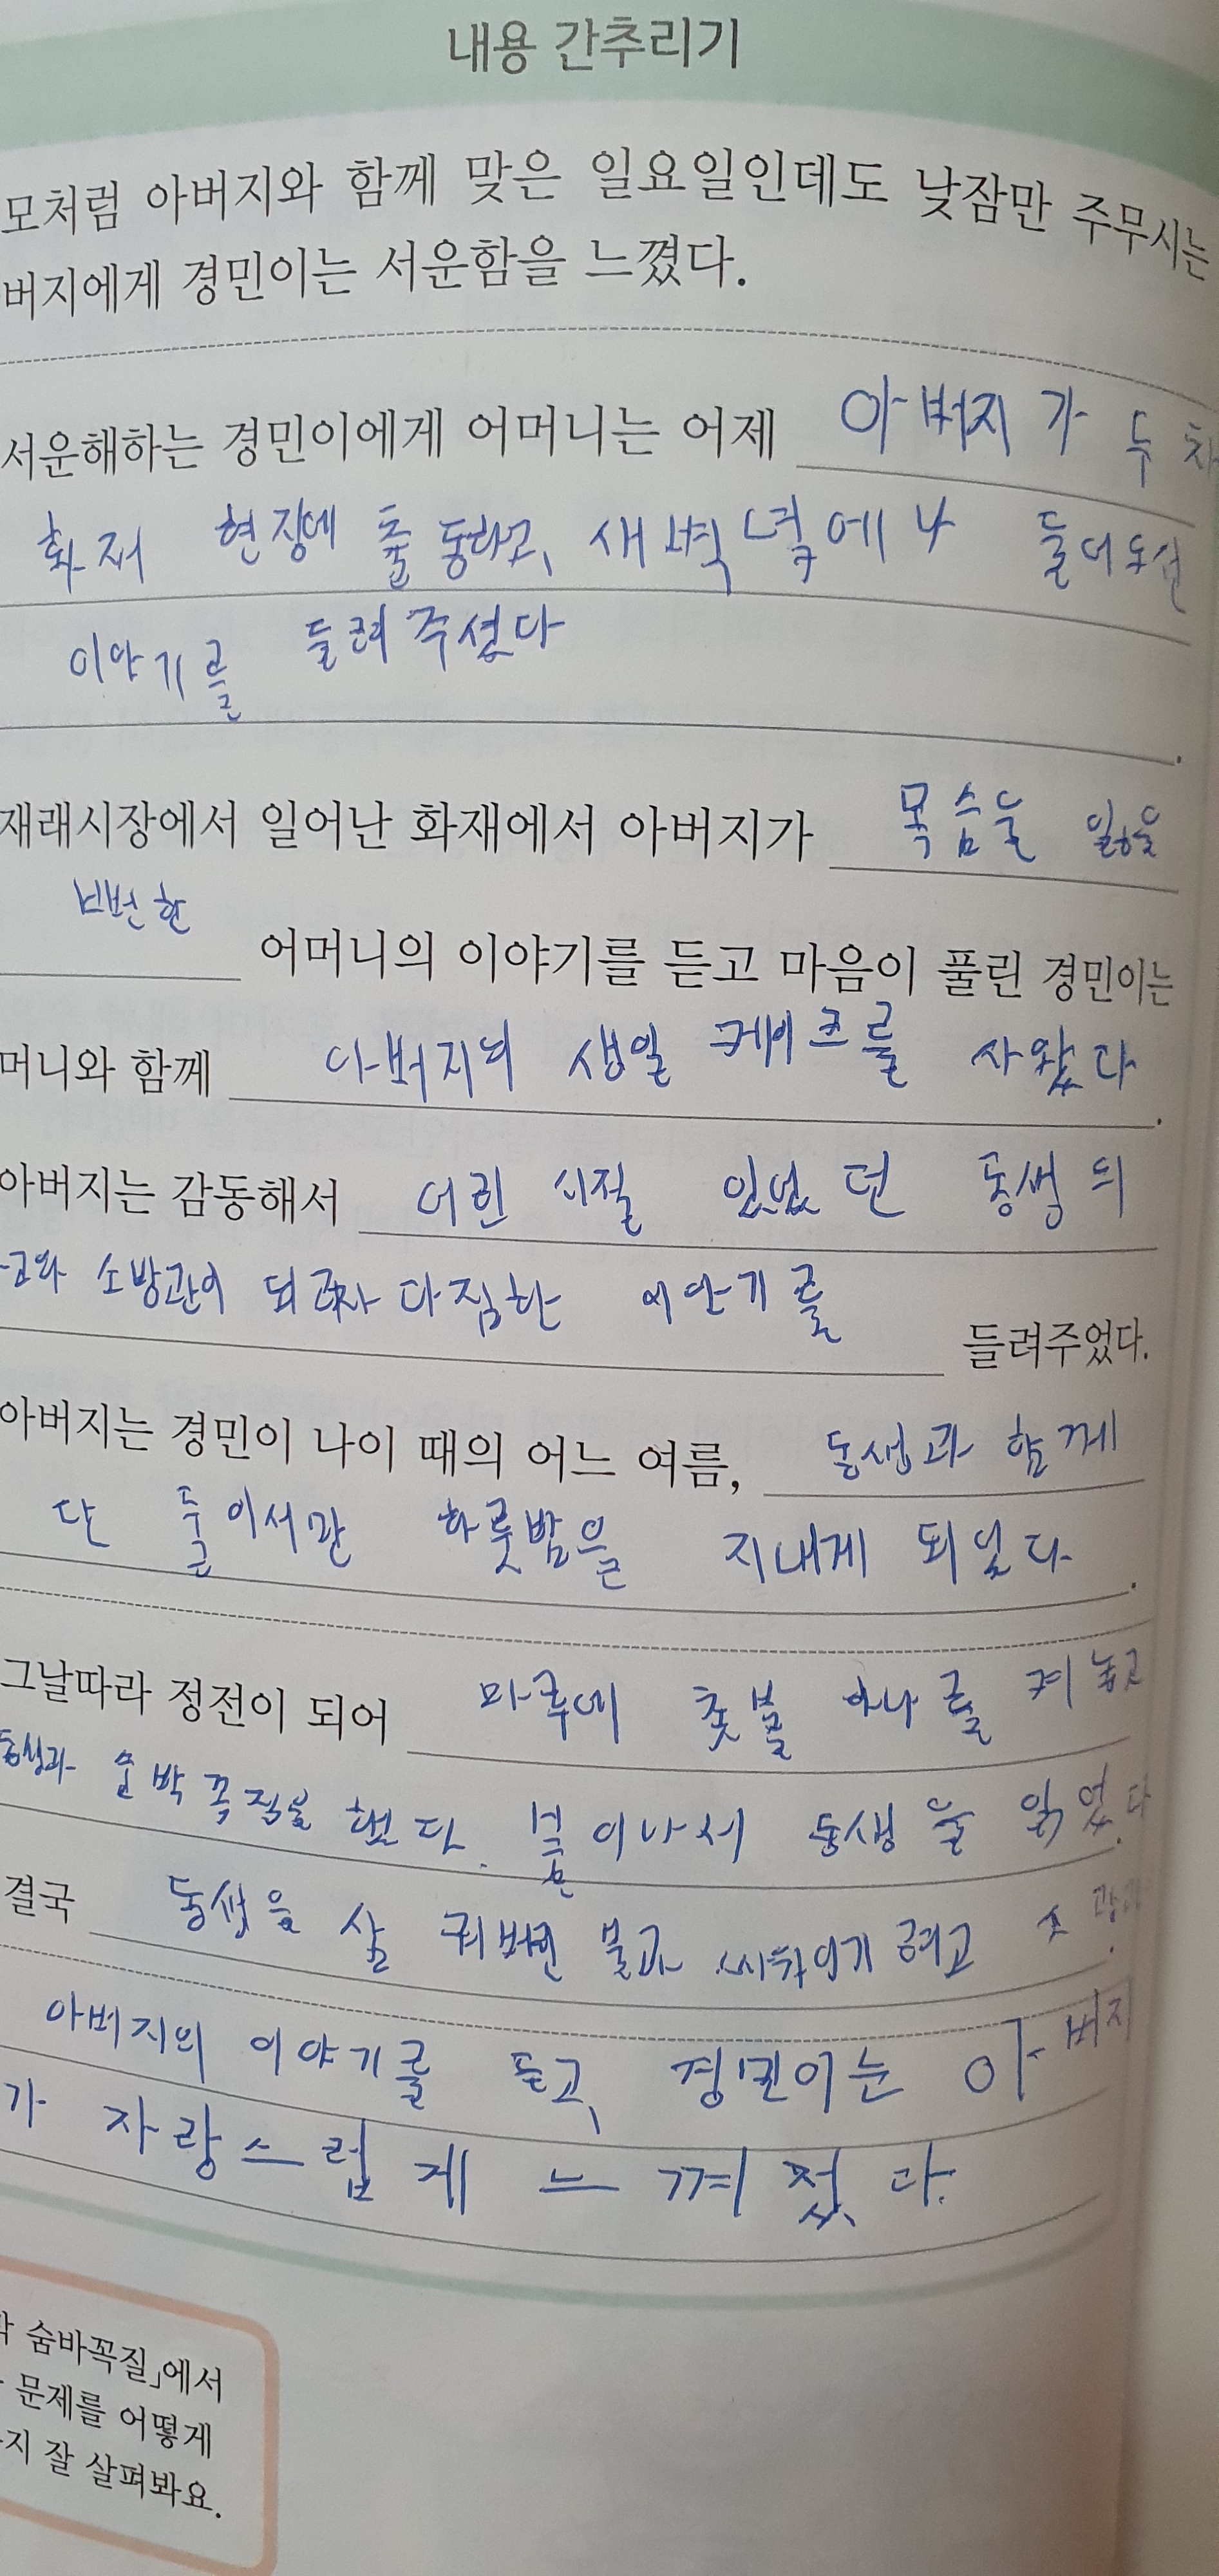 내용 간추리기
모처럼 아버지와 함께 맞은 일요일인데도 낮잠만 주무시는
버지에게 경민이는 서운함을 느꼈다.
서운해하는 경민이에게 어머니는 어제 아버지가 두 차
화재 현장에 출동하고, 새벽녘에나 들어오신
이야기를 들려주셨다
.
재래시장에서 일어난 화재에서 아버지가 목숨을 잃을
뻔한 어머니의 이야기를 듣고 마음이 풀린 경민이는
머니와 함께 아버지의 생일 케이크를 사왔다.
아버지는 감동해서 어린 시절 있었던 동생의
소방관이 되고자 다짐한 이야기를 들려주었다.
아버지는 경민이 나이 때의 어느 여름, 동생과 함께
단 둘이서만 하룻밤을 지내게 되었다.
그날따라 정전이 되어 마루에 촛불 하나를 켜 놓고
동생과 숨박꼭질을 했다. 불이나서 동생을 잃었다.
결국 동생을 삼켜버린 불과 싸우기
아버지의 이야기를 듣고, 경민이는 아버지
가 자랑스럽게 느껴졌다.
숨바꼭질」에서
문제를 어떻게
지 잘 살펴봐요.